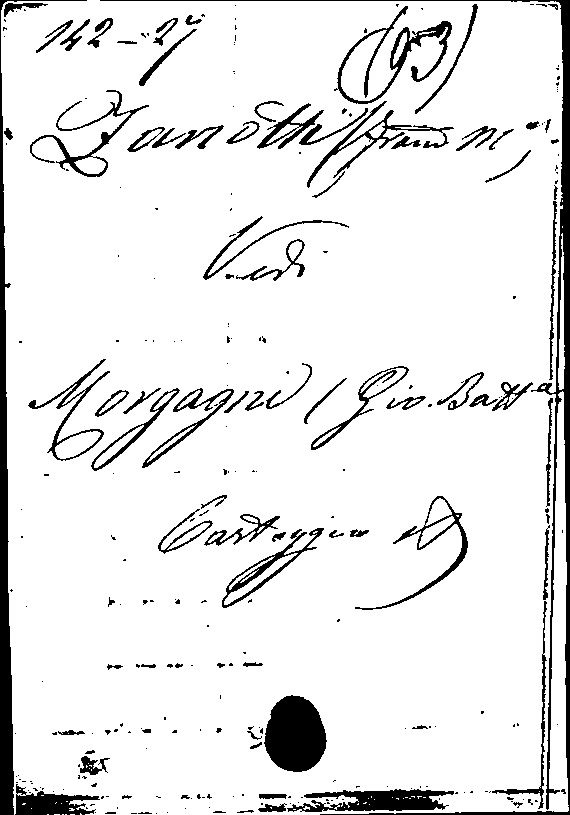 142-27 (93)
Zanotti (Fran.co M.a)
Vedi
Morgagni (Gio. Batt.a
Carteggio